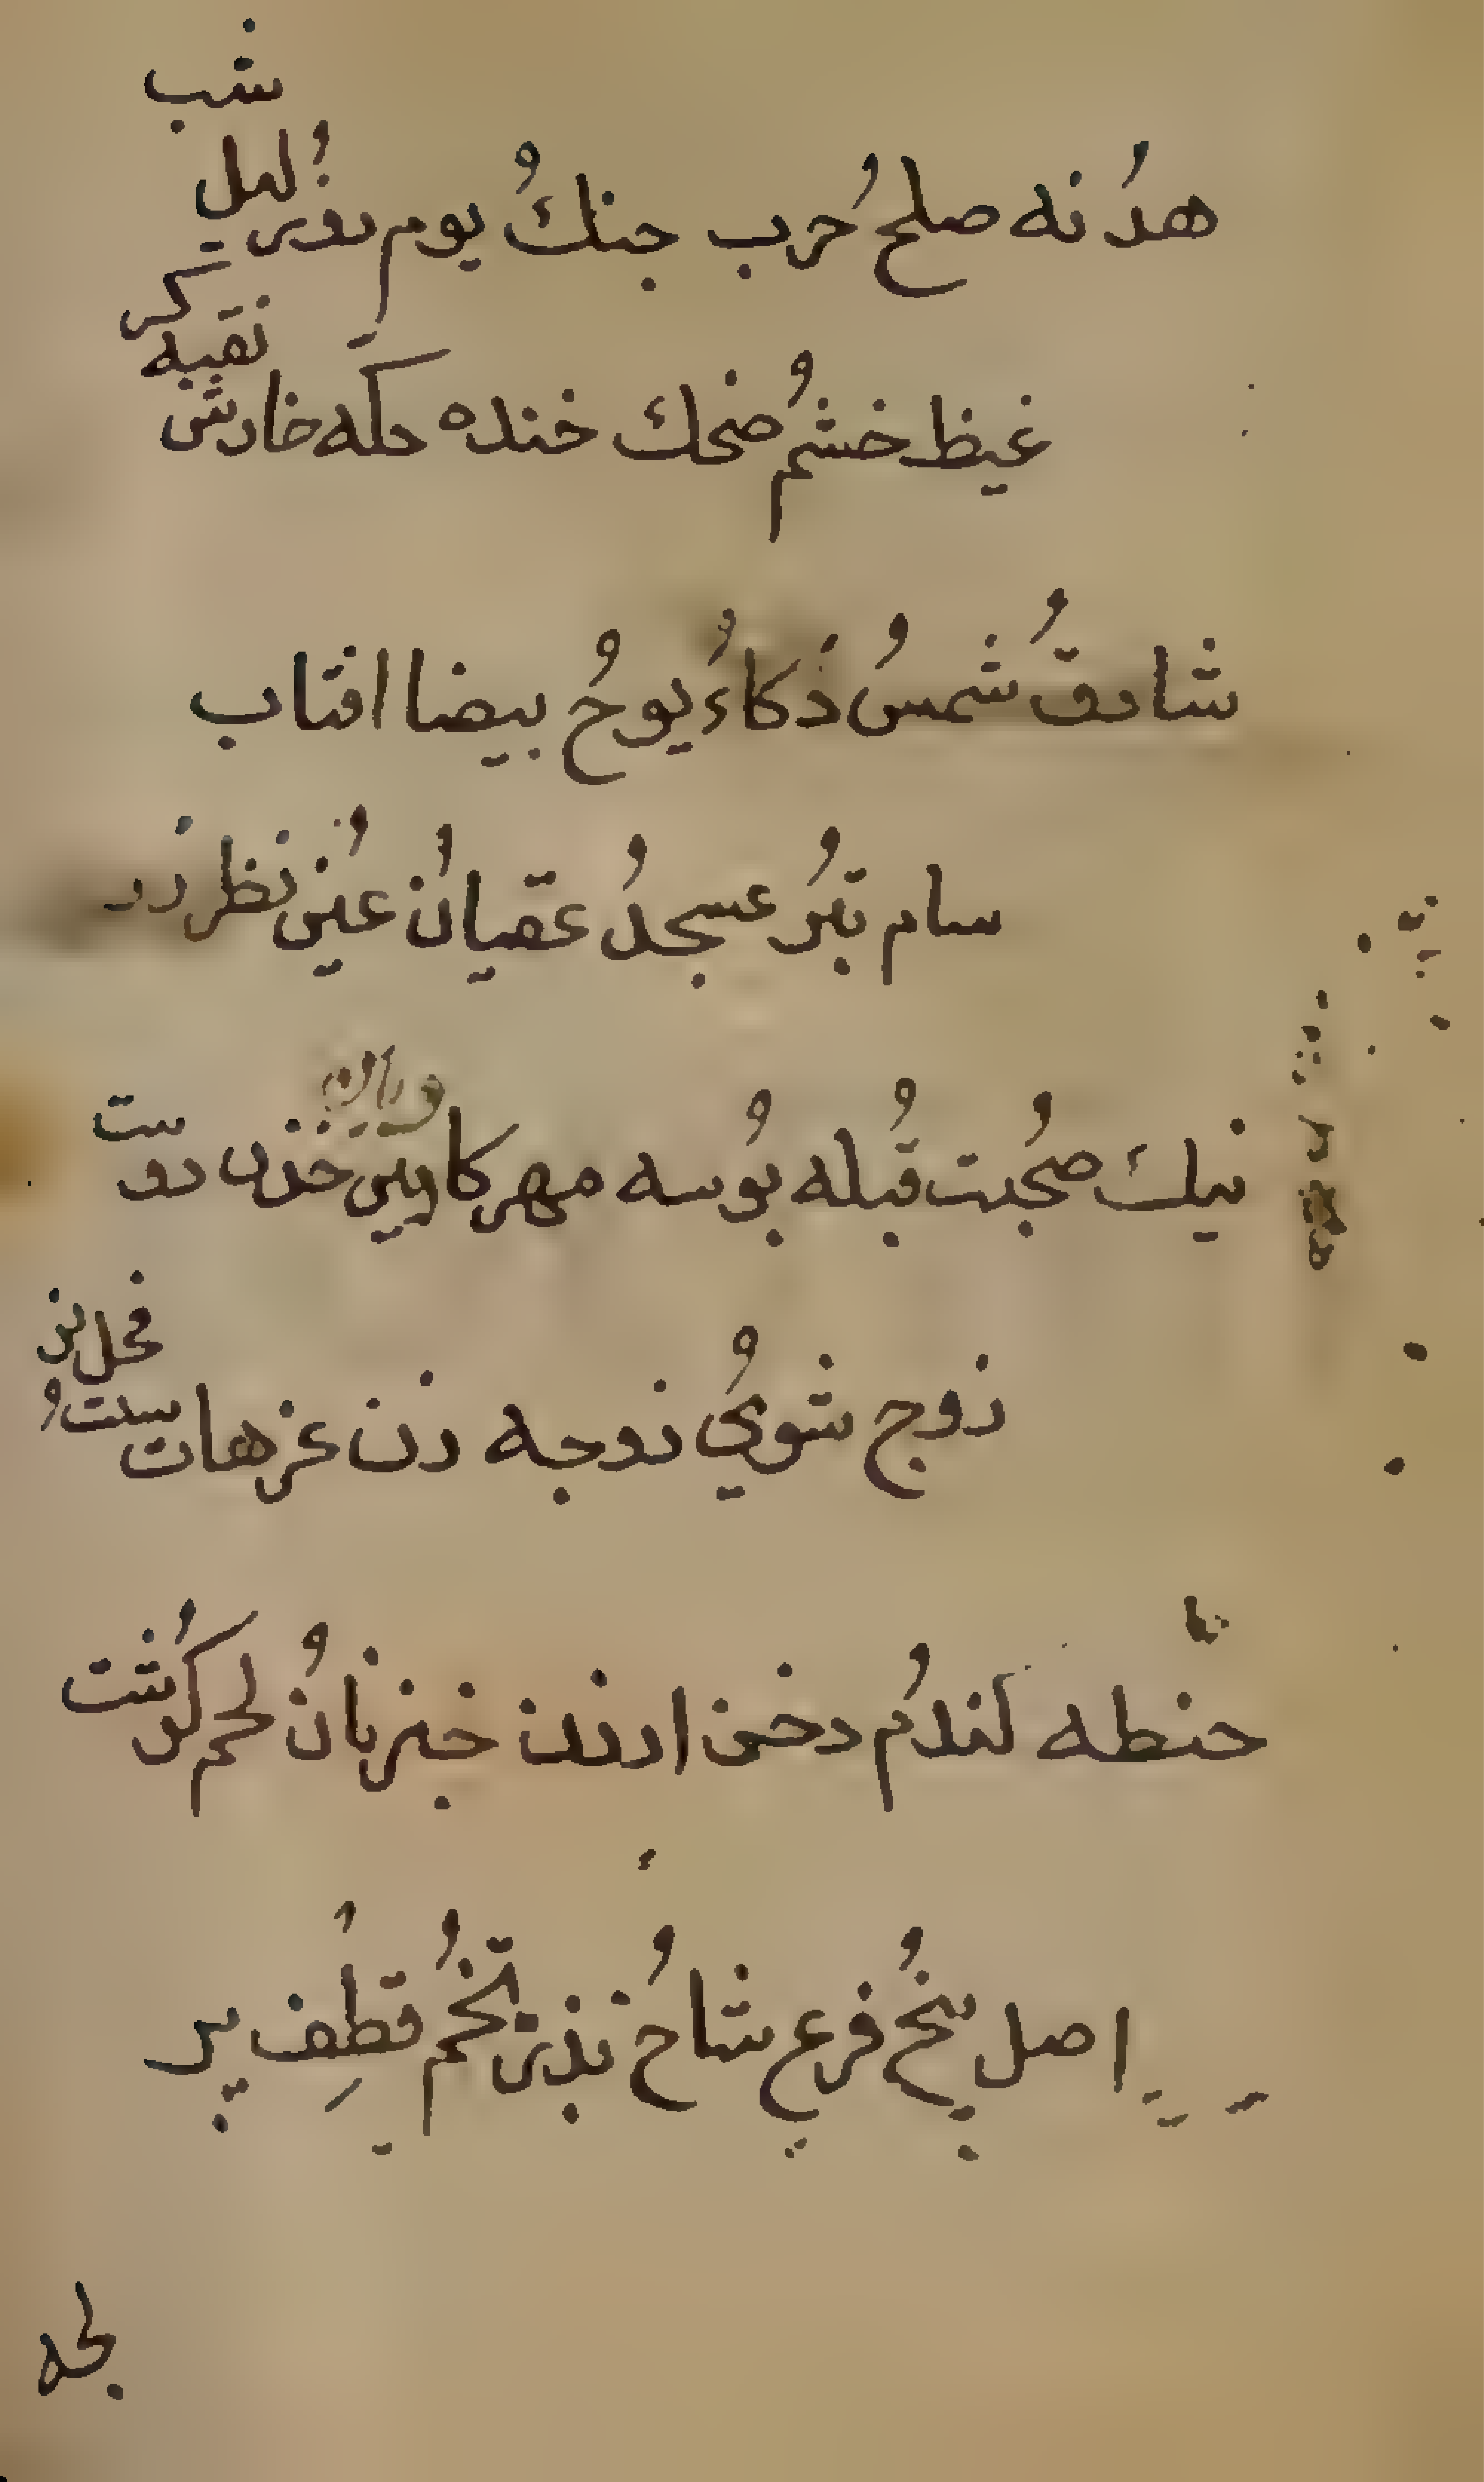 هدنه صلح حرب جنك يوم روز ليل شب
غيظ خشم ضحك خنده حكه خارش نقبه كر
شارق شمسُ ذكاءُ يوحُ بيضا افتاب
سام تبرُ عسجدُ عقيانُ عين نظر زر
نيك صحبت قُبله بُوسه مهر كابين خدن دوست
زوج شويُ زوجه زن عزهات سست فحل نر
حنطه كندم دخن ارزن خبز نانُ لحم كوشت
اصل بيخُ فرع شاخُ بذر تخمُ قطِف بر
لجه